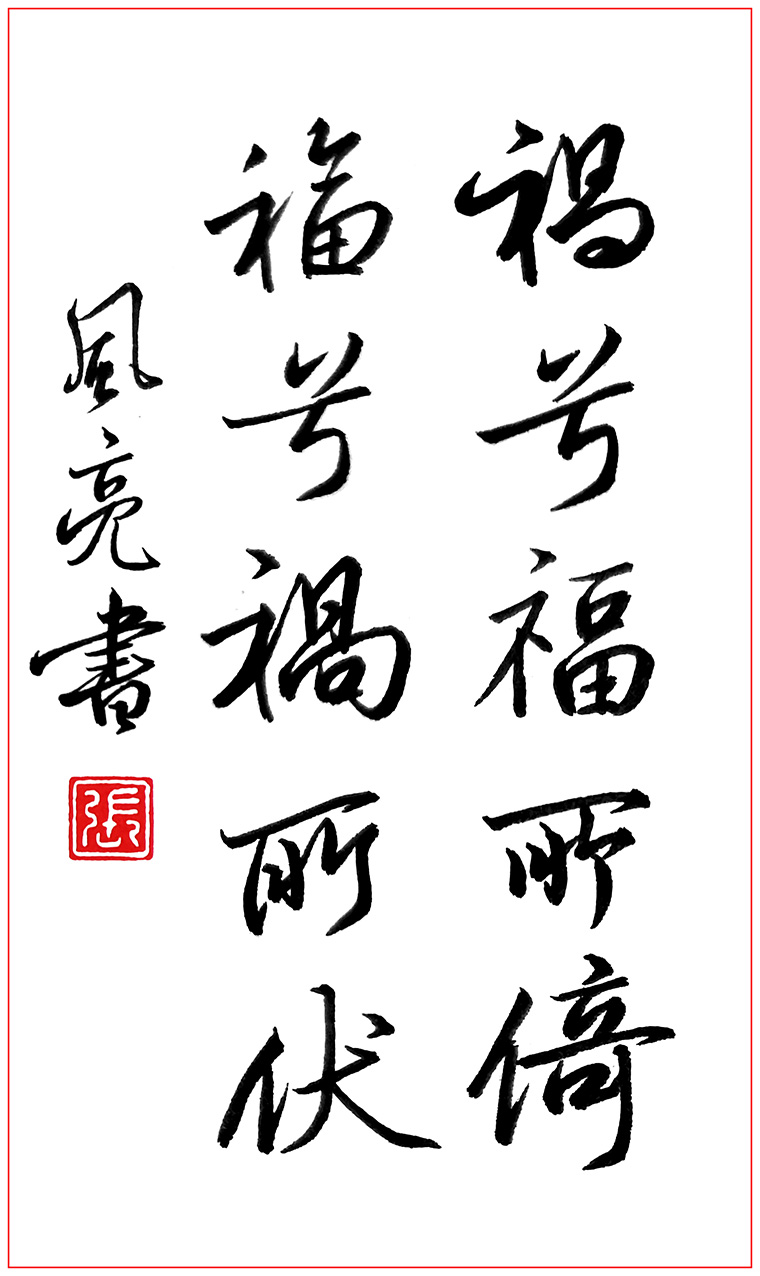 禍兮福所倚
福兮禍所伏
風亮書
張